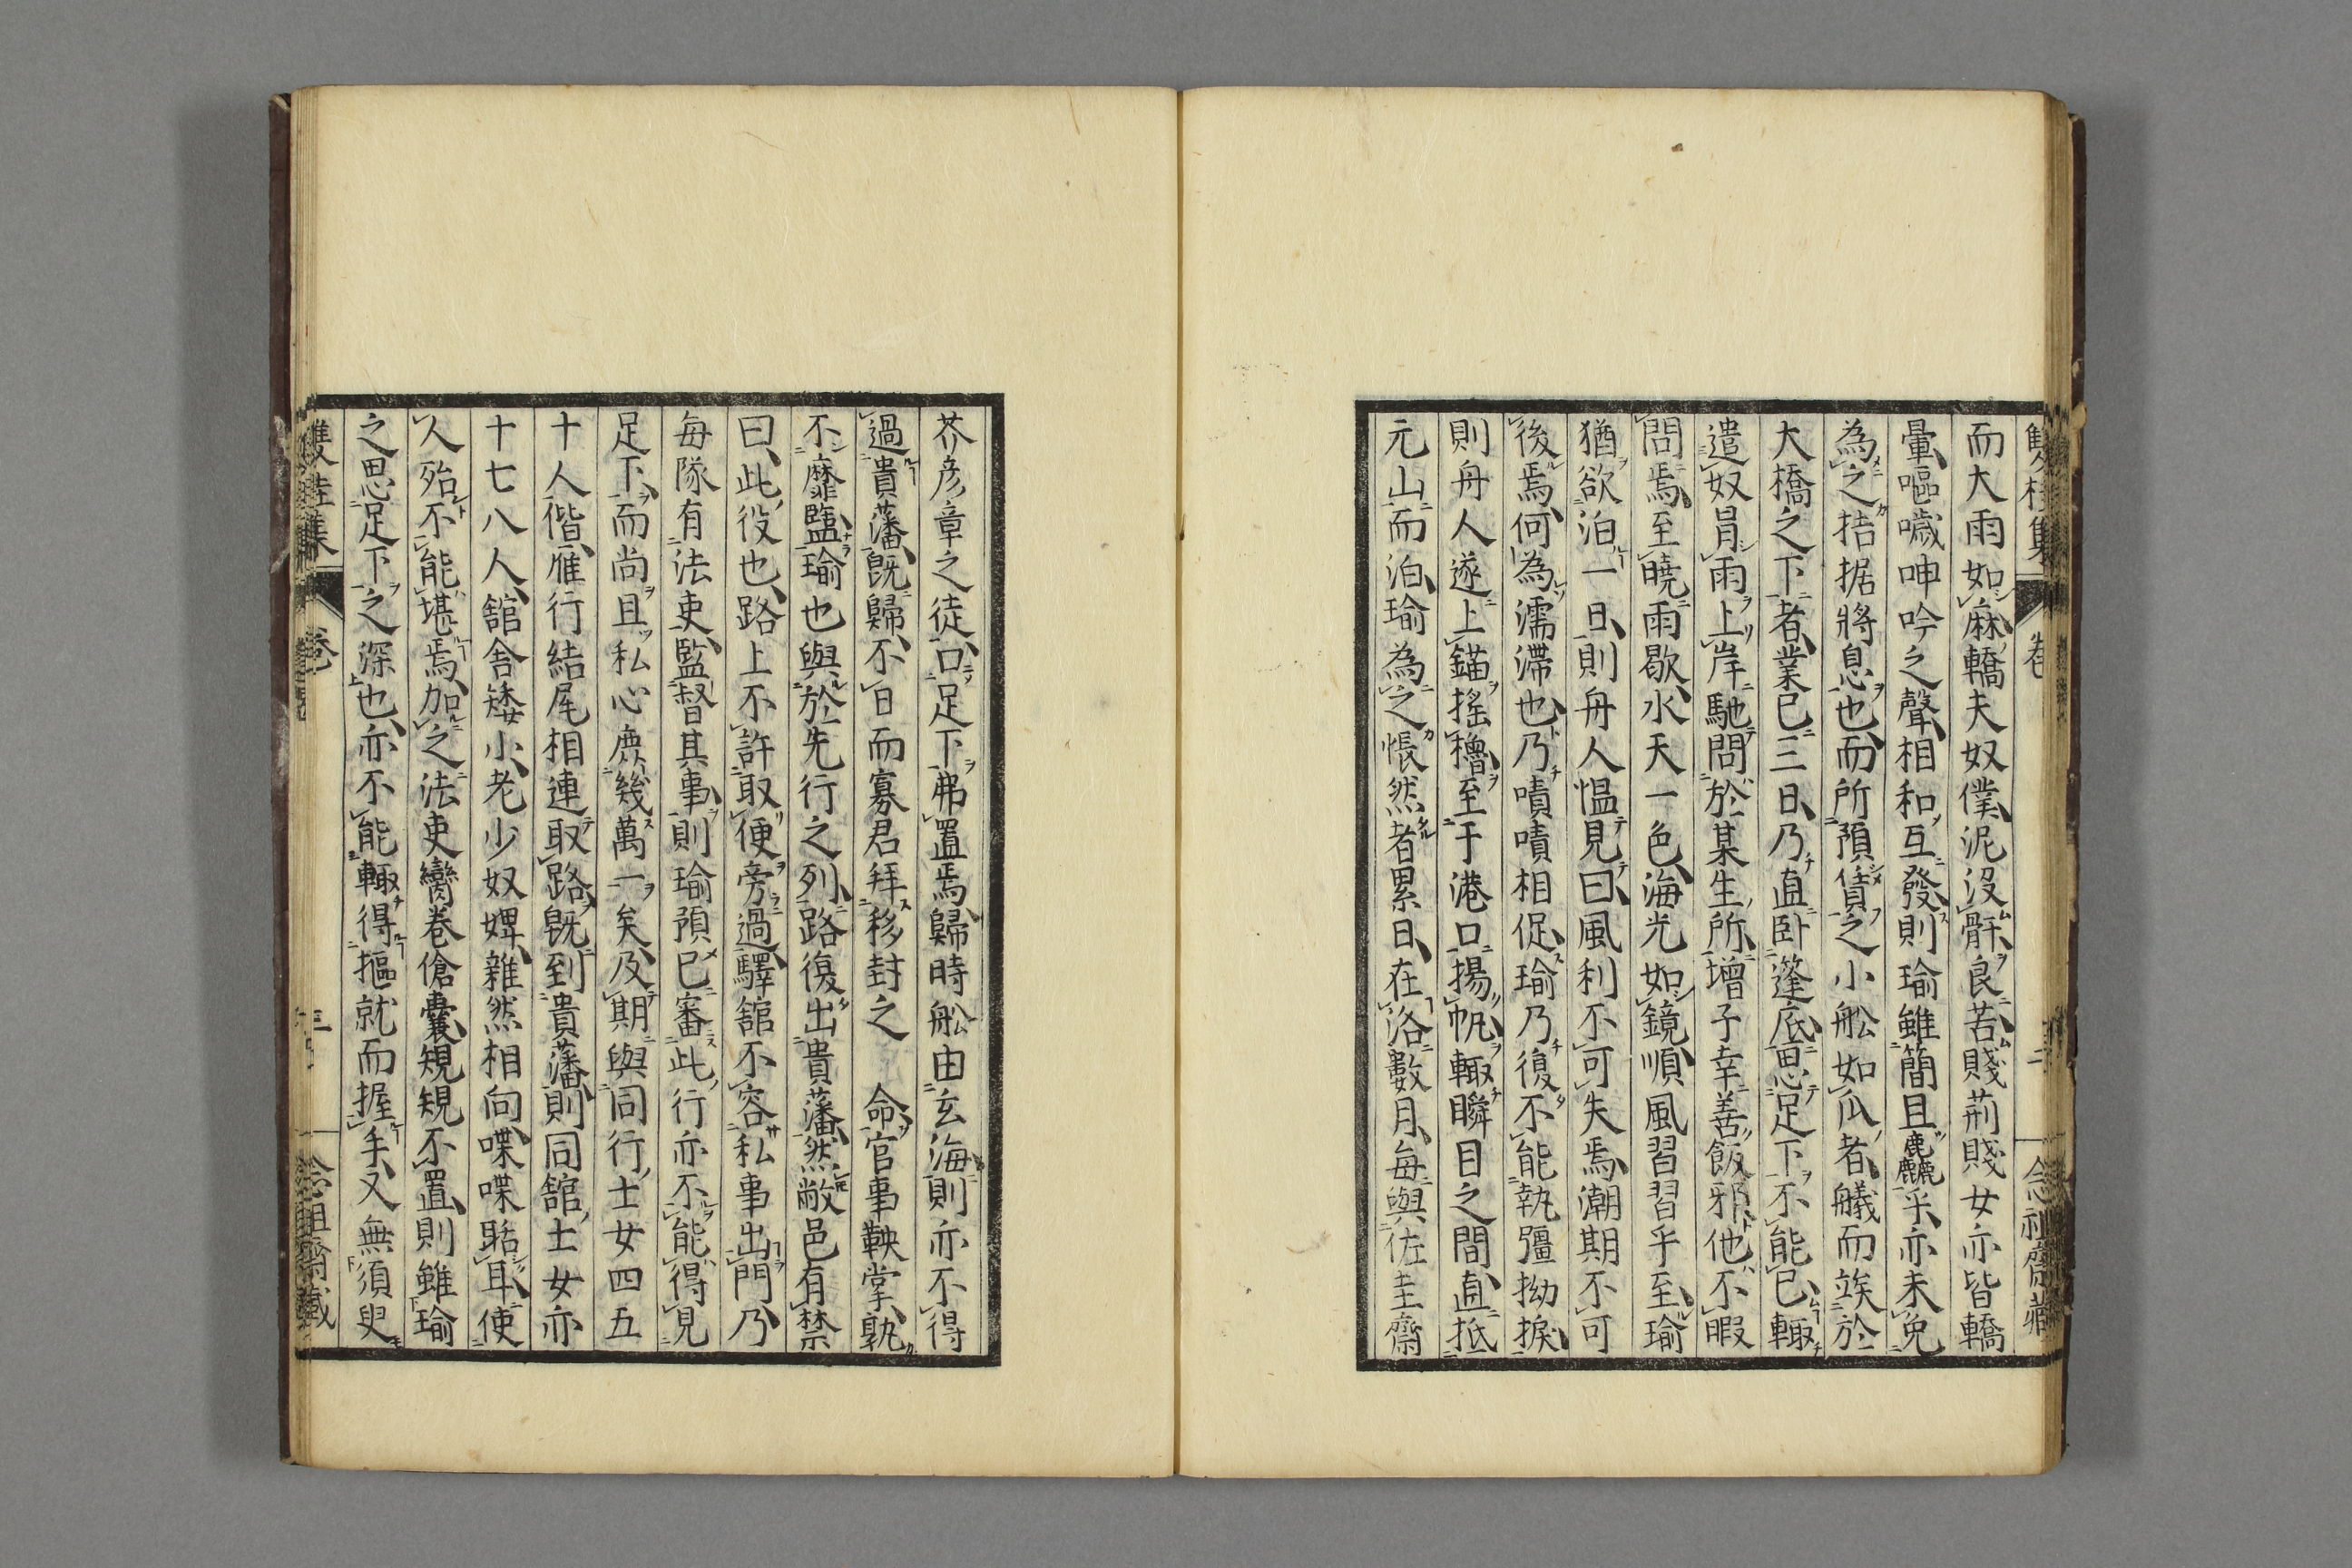 而大雨如麻、轎夫奴僕、泥沒骭、良苦賤荊賤女亦皆轎
暈、嘔噦呻吟之聲、相和互發、則瑜雖簡且麤乎、亦未免
為之拮据將息也、而所預賃之小舩如瓜者、艤而竢於
大橋之下者、業已三日、乃直臥蓬底、思足下不能已、輙
遣奴冐雨上岸、馳問於某生所、增子幸善飯邪、他不暇
問焉、至曉雨歇、水天一色、海光如鏡、順風習習乎至、瑜
猶欲泊一日、則舟人慍見曰、風利不可失焉、潮期不可
後焉、何為濡滯也、乃嘖嘖相促、瑜乃復不能執彊拗捩、
則舟人遂上錨搖櫓、至于港口、揚帆輙瞬目之間、直抵
元山而泊、瑜為之悵然者累日、在洛數月、每與佐圭齋
芥彥章之徒、口足下弗置焉、歸時舩由玄海、則亦不得
過貴藩、既歸、不日而寡君拜移封之 命、官事鞅掌、孰
不靡盬、瑜也與於先行之列、路復出貴藩、然敝邑有禁
曰、此役也、路上不許取便旁過、驛舘不容私事出門、乃
每隊有法吏、監督其事、則瑜預已審此行亦不能得見
足下、而尚且私心庶幾萬一矣、及期與同行士女四五
十人偕、雁行結尾相連取路、既到貴藩、則同舘士女亦
十七八人、舘舍矮小、老少奴婢、雜然相向、喋喋聒耳、使
人殆不能堪焉、加之法吏臠卷傖囊、規規不置、則雖瑜
之思足下之深也、亦不能輙得摳就而握手、又無須臾
雙桂集 卷 念祖齋藏